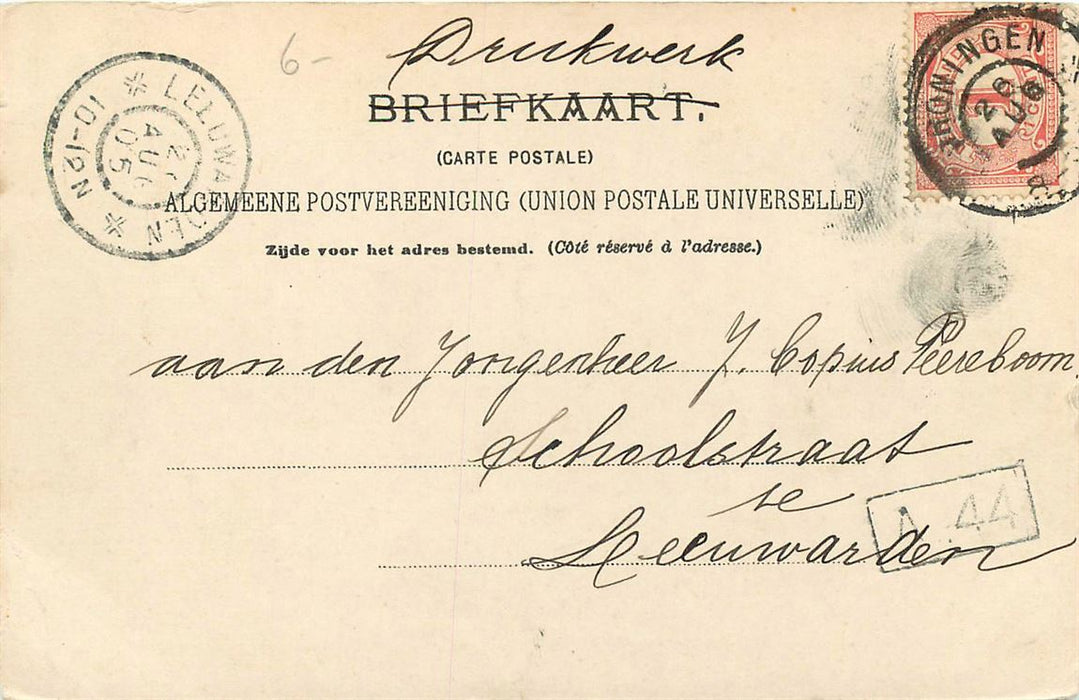 6-
Drukwerk
BRIEFKAART.
(CARTE POSTALE)
ALGEMEENE POSTVEREENIGING (UNION POSTALE UNIVERSELLE)
Zijde voor het adres bestemd. (Côté réservé à l'adresse.)
LEEUWARDEN
AUG
05
N 10-12
GRONINGEN
26
AUG
aan den Jongenheer J. Copius Peereboom
Schoolstraat
te
Leeuwarden
A 44